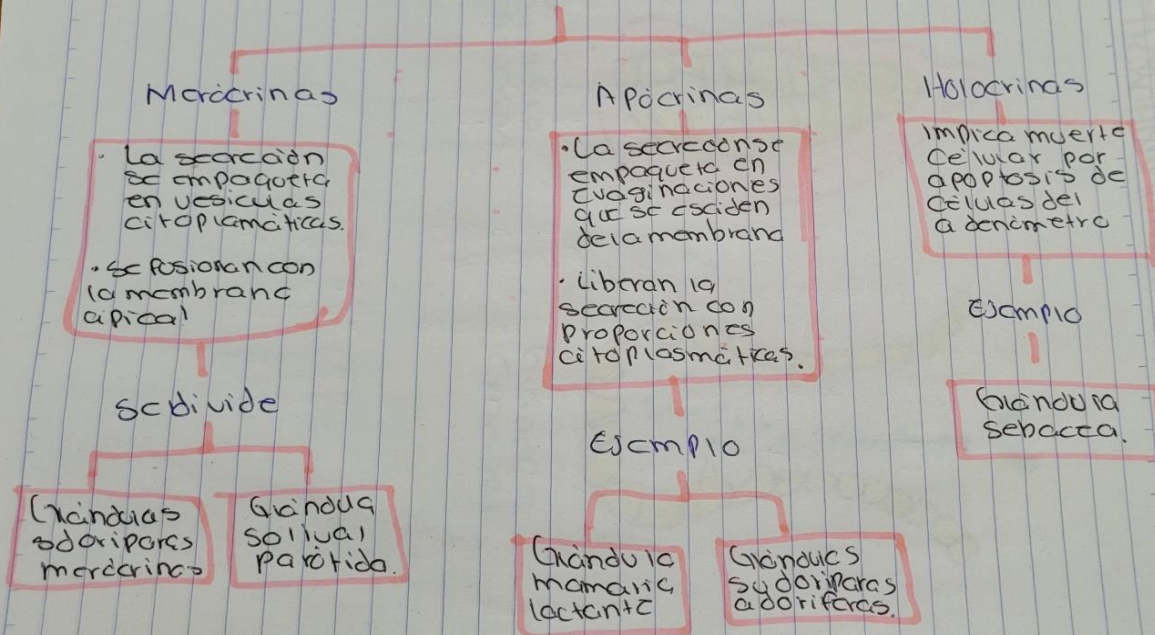 Merócrinas
Apócrinas
Holocrinas
· La secreción
se empaqueta
en vesiculas
citoplamáticas.
· se fosionan con
la membrana
apical
se divide
Glándulas
sdoriparas
merócrinas
Glándula
salival
parótida.
· La secrecconse
empaqueta en
evaginaciones
que se esciden
de la membrana
· Liberan la
secreción con
proporciones
citoplasmáticas.
Ejemplo
Glándula
mamaria
lactante
Glándules
sudoriparas
adoriferas.
implica muerte
Celular por
apoptosis de
células del
adenómetro
Ejemplo
Glándula
sebacea.